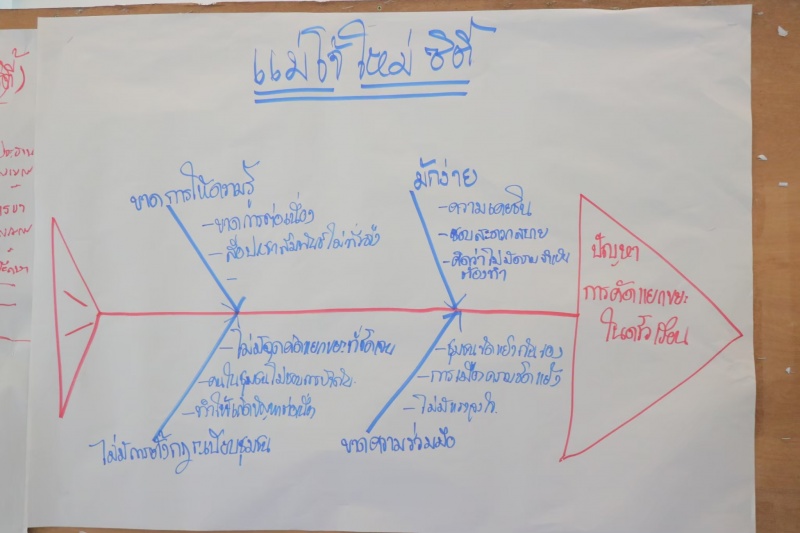 แม่โจ้ใหม่ ซิตี้
ขาดการให้ความรู้
- ขาดการต่อเนื่อง
- สื่อประชาสัมพันธ์ไม่ทั่วถึง
-
มักง่าย
- ความเคยชิน
- ชอบสะดวกสบาย
- คิดว่าไม่มีความจำเป็น
ต้องทำ
ปัญหา
การคัดแยกขยะ
ในครัวเรือน
- ไม่มีจุดคัดแยกขยะที่ชัดเจน
- คนในชุมชนไม่ชอบการบังคับ
- ทำให้เกิดปัญหาต่อเนื่อง
ไม่มีการตั้งกฎระเบียบชุมชน
- ชุมชนขัดแย้งกันเอง
- การเมืองความขัดแย้ง
- ไม่มีแรงจูงใจ
ขาดความร่วมมือ